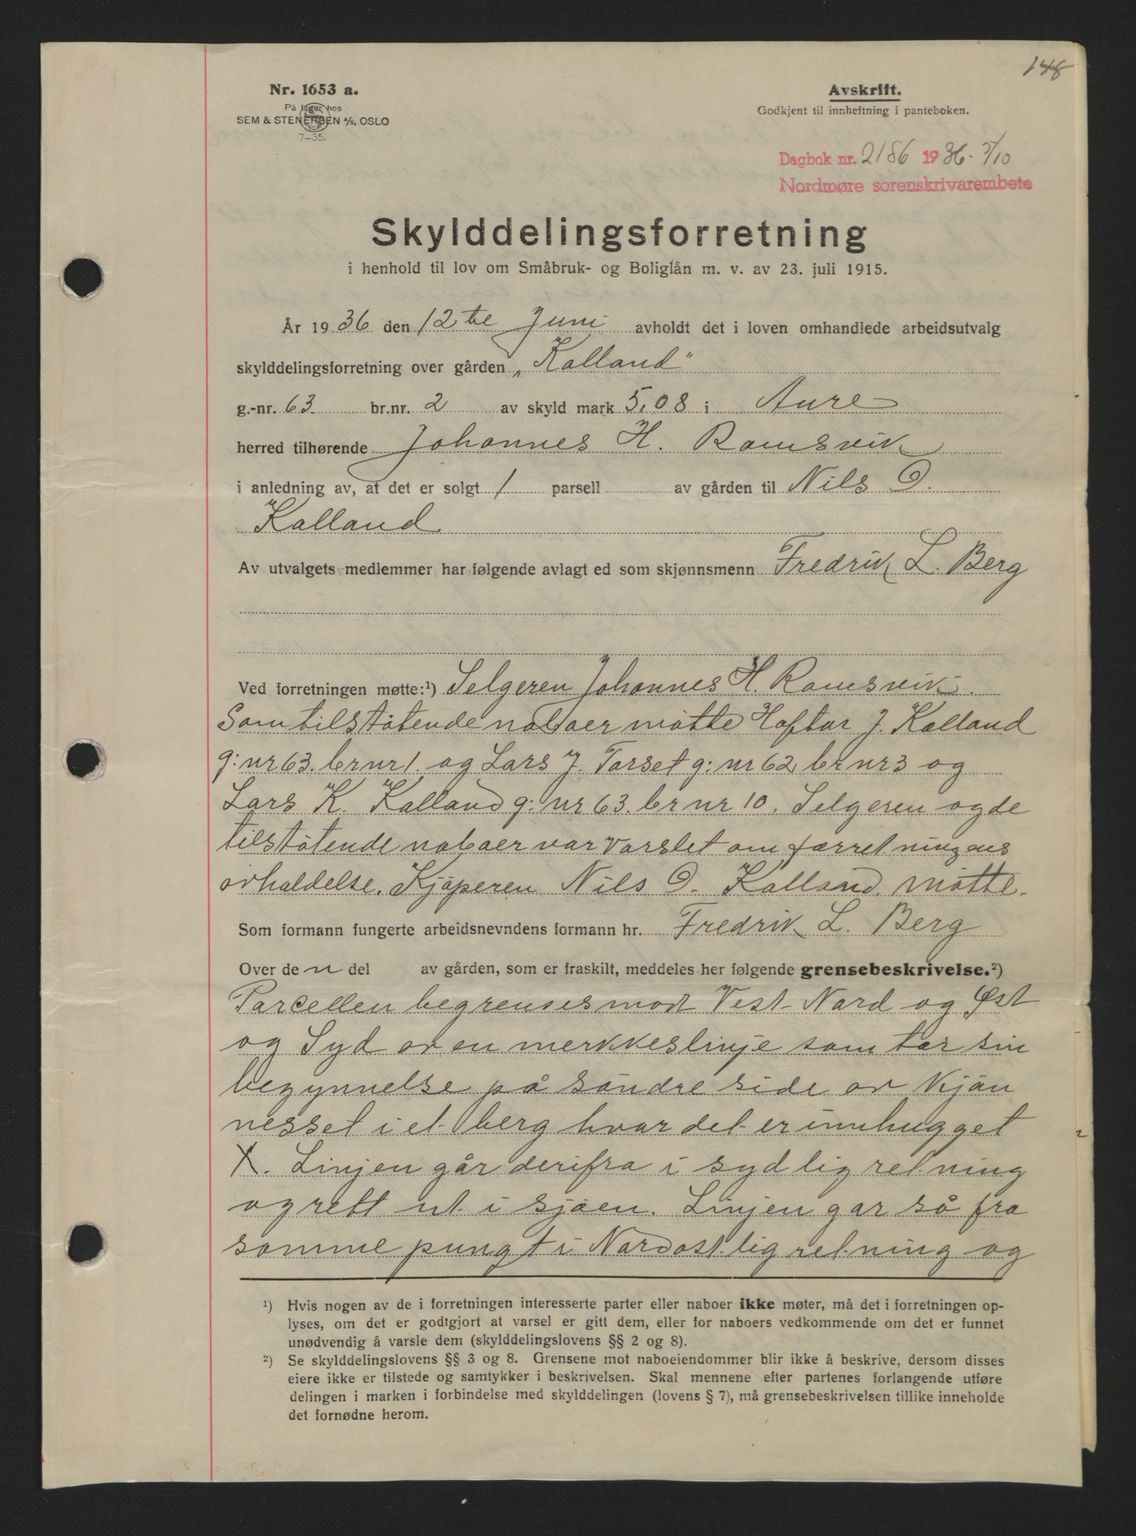 148
Nr. 1653 a.
På lager hos
SEM & STENERSEN A/S, OSLO
7-35.
Avskrift.
Godkjent til innheftning i panteboken.
Dagbok nr. 2186 1936. 3/10
Nordmøre sorenskrivarembete
Skylddelingsforretning
i henhold til lov om Småbruk- og Boliglån m. v. av 23. juli 1915.
År 1936 den 12te Juni avholdt det i loven omhandlede arbeidsutvalg
skylddelingsforretning over gården „Kalland"
g.-nr. 63. br.nr. 2 av skyld mark 5,08 i Aure
herred tilhørende Johannes H. Ramsvik
i anledning av, at det er solgt 1 parsell av gården til Nils O.
Kalland
Av utvalgets medlemmer har følgende avlagt ed som skjønnsmenn Fredrik L. Berg
Ved forretningen møtte:¹) Selgeren Johannes H. Ramsvik.
Som tilstøtende naboer møtte Haftor J. Kalland
g: nr 63. br nr 1. og Lars J. Torset g: nr 62 br nr 3 og
Lars K. Kalland g: nr 63. br nr 10. Selgeren og de
tilstøtende naboer var varslet om færretningens
avholdelse. Kjøperen Nils O. Kalland møtte.
Som formann fungerte arbeidsnevndens formann hr. Fredrik L. Berg
Over den del av gården, som er fraskilt, meddeles her følgende grensebeskrivelse.²)
Parcellen begrenses mot Vest Nord og Øst
og Syd av en merkkeslinje som tar sin
begynnelse på søndre side av Kjøn
nesset i et berg hvor det er innhugget
X. Linjen går derifra i sydlig retning
og rett ut i sjøen. Linjen gar så fra
somme pungt i Nordostlig retning og
¹) Hvis nogen av de i forretningen interesserte parter eller naboer ikke møter, må det i forretningen op-
lyses, om det er godtgjort at varsel er gitt dem, eller for naboers vedkommende om det er funnet
unødvendig å varsle dem (skylddelingslovens §§ 2 og 8).
²) Se skylddelingslovens §§ 3 og 8. Grensene mot naboeiendommer blir ikke å beskrive, dersom disses
eiere ikke er tilstede og samtykker i beskrivelsen. Skal mennene efter partenes forlangende utføre
delingen i marken i forbindelse med skylddelingen (lovens § 7), må grensebeskrivelsen tillike inneholde
det fornødne herom.